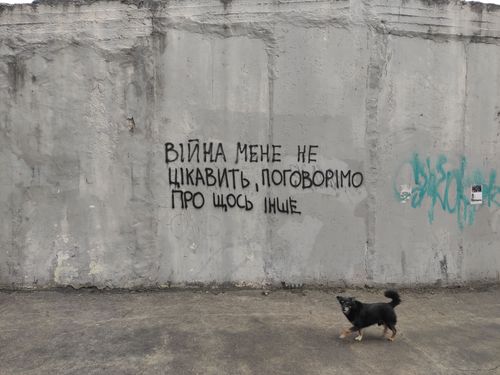 ВІЙНА МЕНЕ НЕ
ЦІКАВИТЬ, ПОГОВОРІМО
ПРО ЩОСЬ ІНШЕ